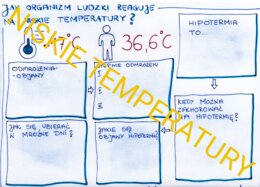 JAK ORGANIZM LUDZKI REAGUJE
NA NISKIE TEMPERATURY?
36,6°C
HIPOTERMIA
TO...
ODMROŻENIA-
OBJAWY
STOPNIE ODMROŻEŃ
KIEDY MOŻNA
ZACHOROWAĆ
NA HIPOTERMIĘ?
JAK SIĘ UBIERAĆ
W MROŹNE DNI?
JAKIE SĄ
OBJAWY HIPOTERMII?
NISKIE TEMPERATURY